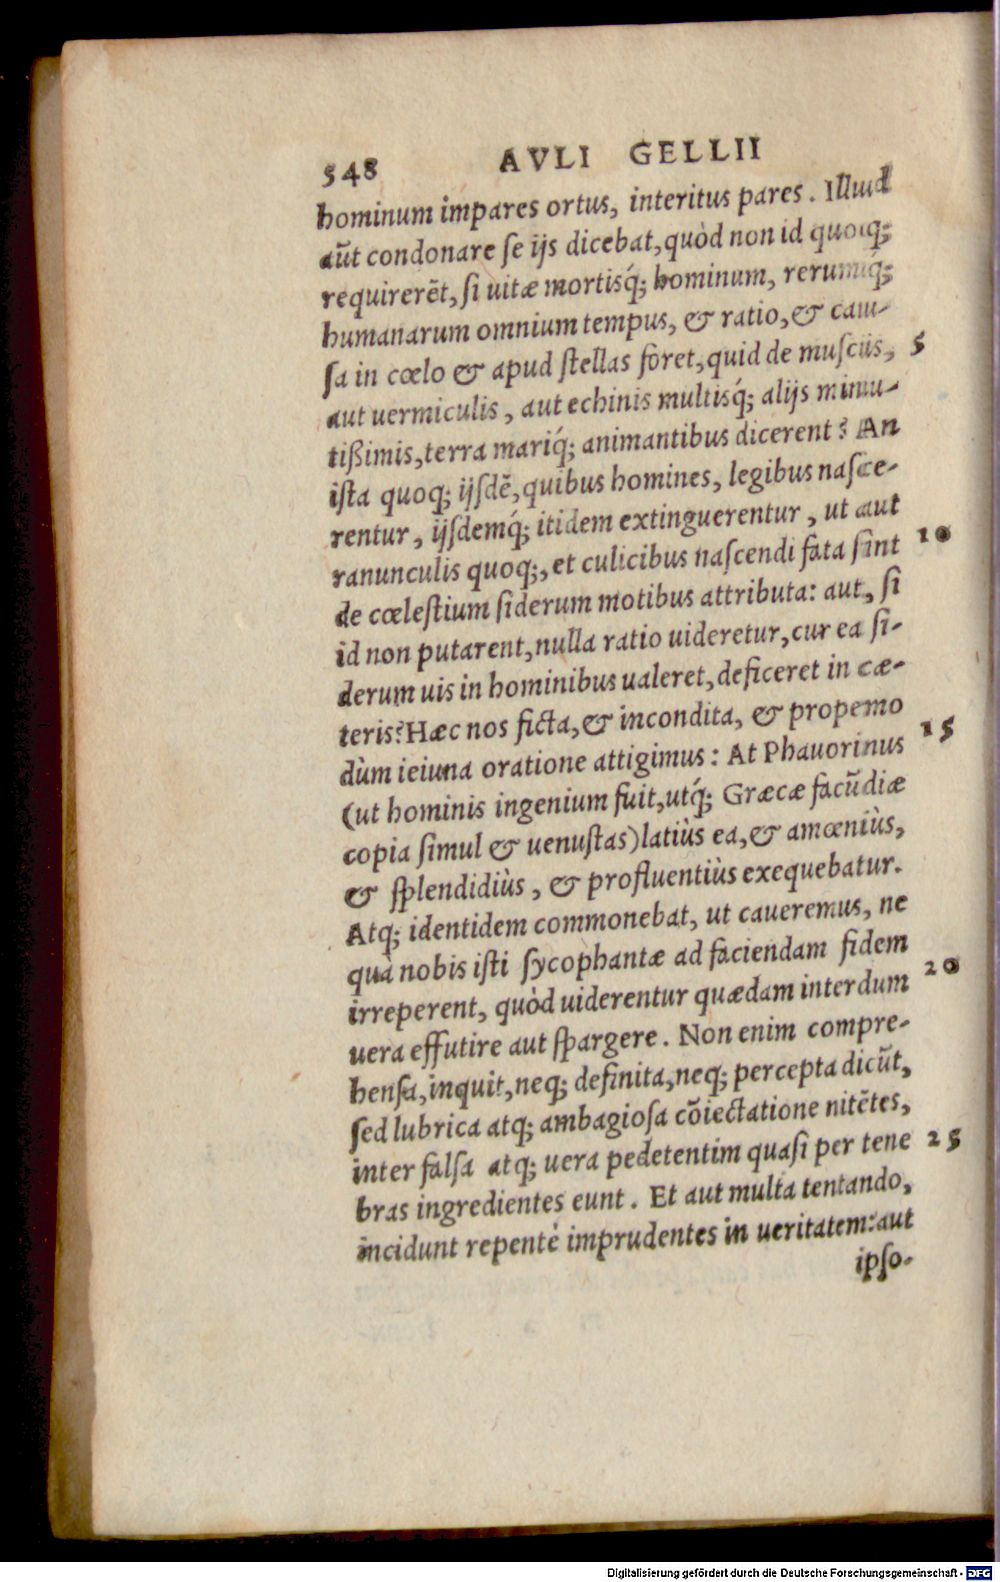 548 AVLI GELLII
hominum impares ortus, interitus pares. Illud
aūt condonare ſe ijs dicebat, quòd non id quoq;
requirerēt, ſi uitæ mortisq́; hominum, rerumq́;
humanarum omnium tempus, & ratio, & cau-
ſa in cœlo & apud ſtellas foret, quid de muſcis, 5
aut uermiculis, aut echinis multisq́; alijs minu-
tißimis, terra mariq́; animantibus dicerent? An
iſta quoq; ijſdē, quibus homines, legibus naſce-
rentur, ijſdemq́; itidem extinguerentur, ut aut
ranunculis quoq;, et culicibus naſcendi fata ſint 10
de cœleſtium ſiderum motibus attributa: aut, ſi
id non putarent, nulla ratio uideretur, cur ea ſi-
derum uis in hominibus ualeret, deficeret in cæ-
teris? Hæc nos ficta, & incondita, & propemo
dùm ieiuna oratione attigimus: At Phauorinus 15
(ut hominis ingenium fuit, utq́; Græcæ facūdiæ
copia ſimul & uenuſtas) latiùs ea, & amœniùs,
& ſplendidiùs, & profluentiùs exequebatur.
Atq; identidem commonebat, ut caueremus, ne
quà nobis iſti ſycophantæ ad faciendam fidem
irreperent, quòd uiderentur quædam interdum 20
uera effutire aut ſpargere. Non enim compre-
henſa, inquit, neq; definita, neq; percepta dicūt,
ſed lubrica atq; ambagioſa cōiectatione nitētes,
inter falſa atq; uera pedetentim quaſi per tene 25
bras ingredientes eunt. Et aut multa tentando,
incidunt repentè imprudentes in ueritatem: aut
ipſo-
Digitalisierung gefördert durch die Deutsche Forschungsgemeinschaft - DFG